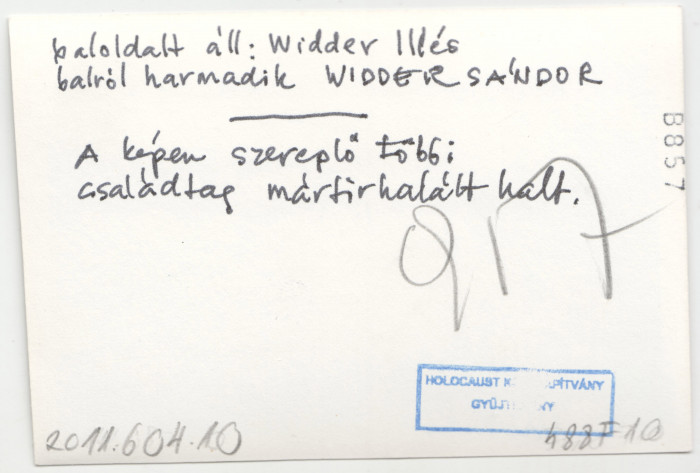 baloldalt áll: Widder Illés
balról harmadik WIDDER SÁNDOR
A képen szereplő többi
családtag mártirhalált halt.
B857
917
HOLOCAUST
GYŰJ
2011.604.10
488F10